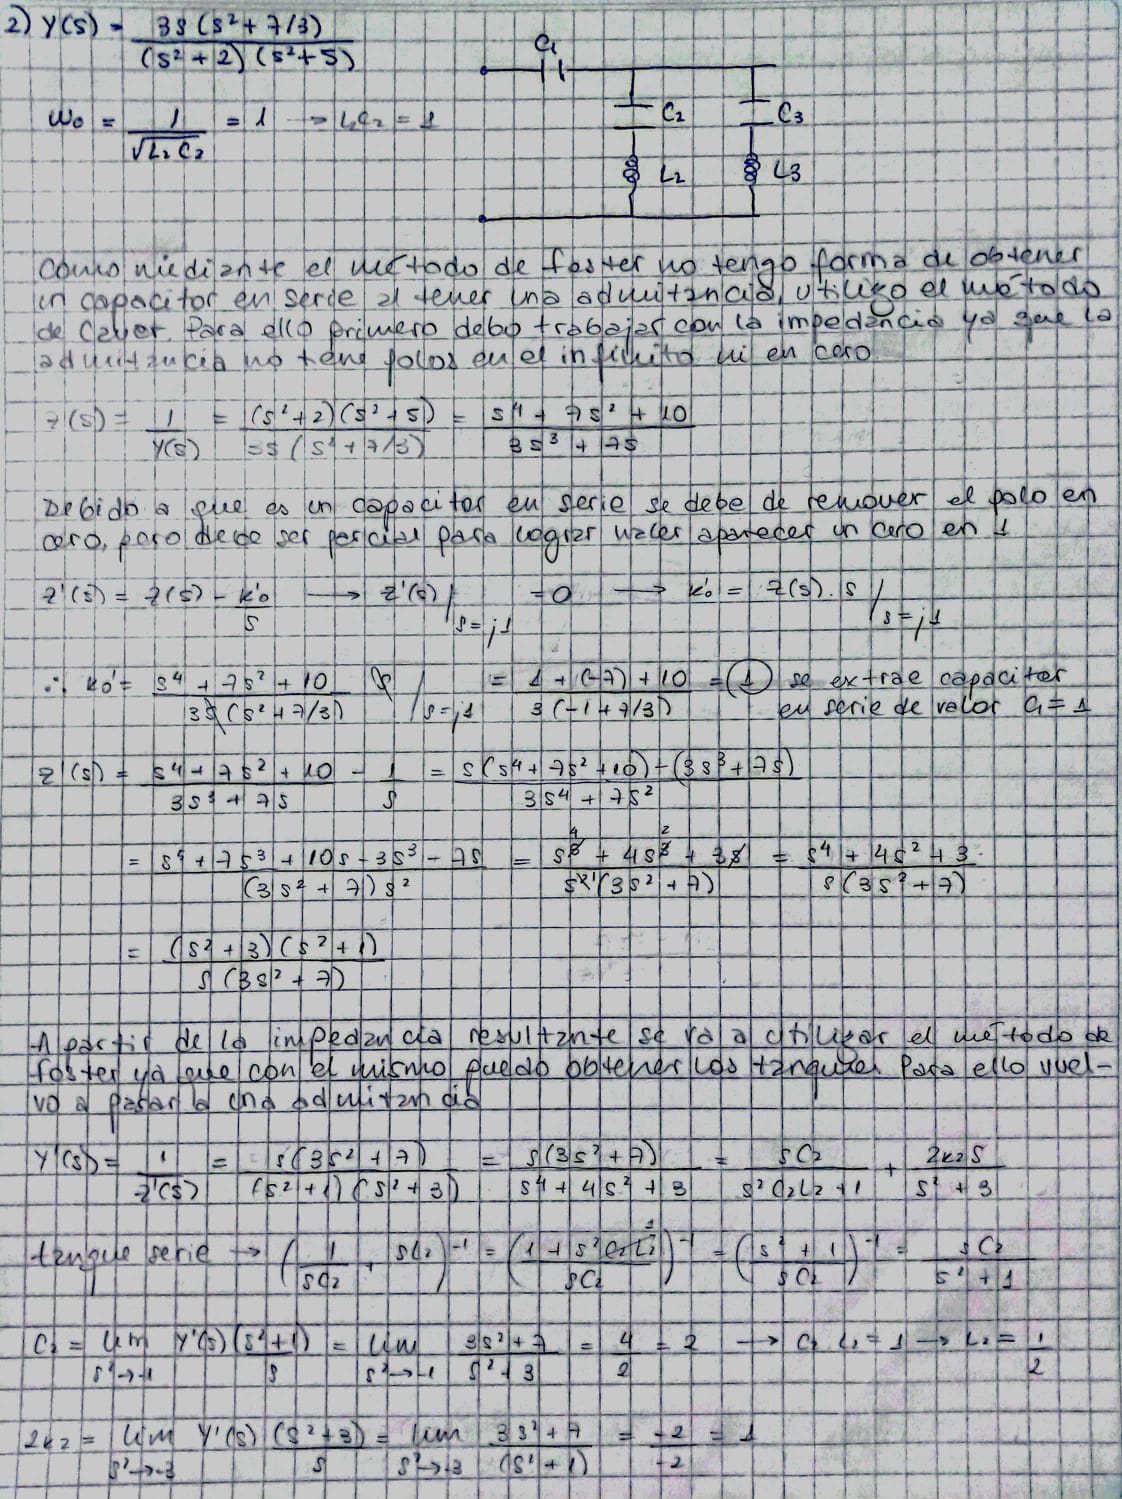 2) Y(s) = 3s(s²+7/3) / (s²+2)(s²+5)
C₁
C₂ C₃
L₂ L3
ω₀ = 1/√(L₂C₂) = 1 → L₂C₂ = 1
Como mediante el método de foster no tengo forma de obtener
un capacitor en serie al tener una admitancia, utilizo el método
de Cauer. Para ello primero debo trabajar con la impedancia ya que la
admitancia no tiene polos en el infinito ni en cero
z(s) = 1/Y(s) = (s²+2)(s²+5) / 3s(s²+7/3) = (s⁴ + 7s² + 10) / (3s³ + 7s)
Debido a que es un capacitor en serie se debe de remover el polo en
cero, pero debe ser parcial para lograr hacer aparecer un cero en 1
z'(s) = z(s) - k₀'/s → z'(s)|s=j1 = 0 → k₀' = z(s).s|s=j1
∴ k₀' = (s⁴ + 7s² + 10)/(3s(s²+7/3)) s|s=j1 = (1+(-7)+10)/(3(-1+7/3)) = 1 se extrae capacitor
en serie de valor C₁ = 1
z'(s) = (s⁴ + 7s² + 10)/(3s³ + 7s) - 1/s = (s(s⁴ + 7s² + 10) - (3s³ + 7s))/(3s⁴ + 7s²)
= (s⁵ + 7s³ + 10s - 3s³ - 7s)/((3s² + 7)s²) = (s⁵ + 4s³ + 3s)/(s²(3s² + 7)) = (s⁴ + 4s² + 3)/(s(3s² + 7))
= (s² + 3)(s² + 1) / s(3s² + 7)
A partir de la impedancia resultante se va a utilizar el método de
foster ya que con el mismo puedo obtener los tanques. Para ello vuel-
vo a pasar a una admitancia
Y'(s) = 1/z'(s) = s(3s² + 7)/((s²+1)(s²+3)) = s(3s²+7)/(s⁴ + 4s² + 3) = sC₂/(s²C₂L₂+1) + 2k₂s/(s²+3)
tanque serie → (1/sC₂ + sL₂)⁻¹ = ((1 + s²C₂L₂ 1)/sC₂)⁻¹ = ((s² + 1)/sC₂)⁻¹ = sC₂/(s² + 1)
C₂ = lim s²→-1 Y'(s) (s²+1)/s = lim s²→-1 (3s²+7)/(s²+3) = 4/2 = 2 → C₂ L₂ = 1 → L₂ = 1/2
2k₂ = lim s²→-3 Y'(s) (s²+3)/s = lim s²→-3 (3s²+7)/(s²+1) = -2/-2 = 1